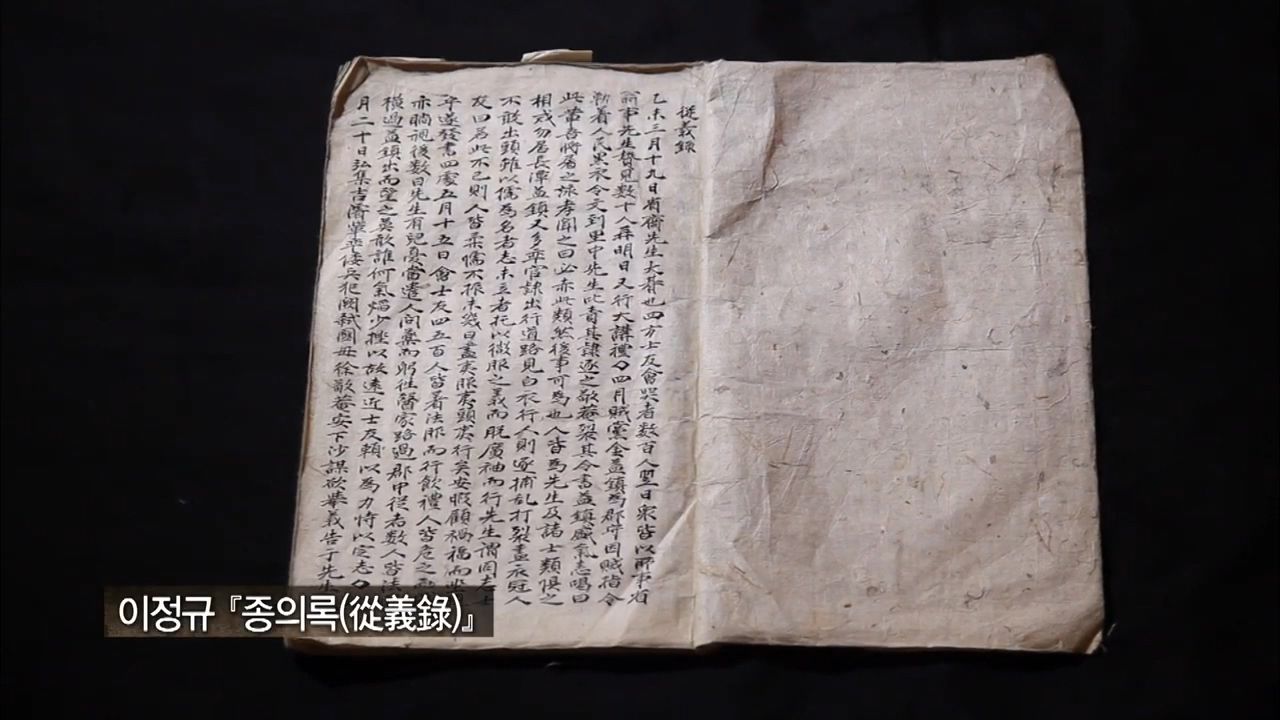 從義錄
乙未三月十九日省齋先生大朞也四方士友會哭者数百人翌日衆皆以所事省
翁事先生贄見数十人再明日又行大講禮〇四月賊黨金益鎮為郡守因賊指令
勒着人民黑衣令文到里中先生叱責其隷逐之敬菴裂其令書益鎮盛氣恚喝曰
此輩吾將屠之詠孝聞之曰必亦此類然後事可為也人皆為先生及諸士類惧之
相戒勿居長潭益鎮又多率官隷出行道路見白衣行人則逐捕乱打裂盡衣冠人
不敢出頭雖以儒為名者志未立者托以微服之義而脫廣袖而行先生謂同志士
友曰若此不已則人皆柔懦不振未幾日盡夷服夷頭夷行矣安暇顧禍福而
卒遂發書四處五月十五日會士友四五百人皆着法服而行飲禮人皆危之
亦睄視後数日先生有兒憂當遣人問藥而躬往醫家路過郡中從者数人皆法
橫過益鎮出而望之莫敢誰何氣焰少挫以故遠近士友賴以為力恃以定志〇
月二十日弘集吉濬輩率倭兵犯闕弑國母徐敬菴安下沙謀欲擧義告于先生
이정규『종의록(從義錄)』